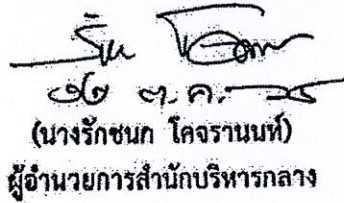 ต.ค.
(นางรักชนก โคจรานนท์)
ผู้อำนวยการสำนักบริหารกลาง